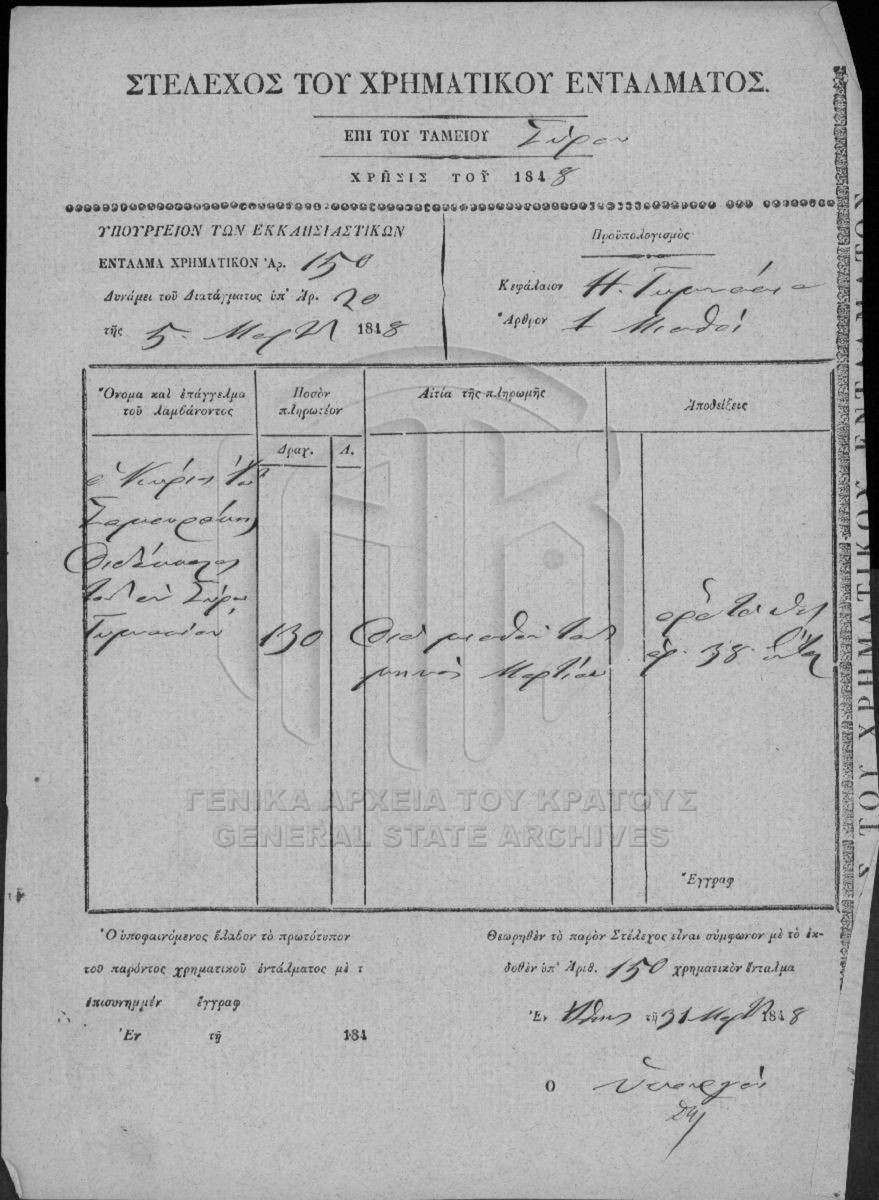 ΣΤΕΛΕΧΟΣ ΤΟΥ ΧΡΗΜΑΤΙΚΟΥ ΕΝΤΑΛΜΑΤΟΣ.
ΕΠΙ ΤΟΥ ΤΑΜΕΙΟΥ Σύρου
ΧΡΗΣΙΣ ΤΟΥ 1848
ΥΠΟΥΡΓΕΙΟΝ ΤΩΝ ΕΚΚΛΗΣΙΑΣΤΙΚΩΝ
ΕΝΤΑΛΜΑ ΧΡΗΜΑΤΙΚΟΝ Ἀρ. 150
Δυνάμει τοῦ Διατάγματος ὑπ' Ἀρ. 20
τῆς 5 Μαρτ 1848
Προϋπολογισμὸς
Κεφάλαιον Η. Γυμνάσια
Ἄρθρον 1 Μισθοί
Ὄνομα καὶ ἐπάγγελμα
τοῦ λαμβάνοντος
Ποσὸν
πληρωτέον
Αἰτία τῆς πληρωμῆς
Ἀποδείξεις
Δραχ.
Λ.
ὁ Κύριος
διδάσκαλος
τοῦ ἐν Σύρῳ
Γυμνασίου
130
διὰ μισθὸν τοῦ
μηνὸς Μαρτίου
ὅρα τὸ
ἀρ. 38
Ἔγγραφ
Ὁ ὑποφαινόμενος ἔλαβον τὸ πρωτότυπον
τοῦ παρόντος χρηματικοῦ ἐντάλματος μὲ τ
ἐπισυνημμέν ἔγγραφ
Ἐν τῇ 184
Θεωρηθὲν τὸ παρὸν Στέλεχος εἶναι σύμφωνον μὲ τὸ ἐκ-
δοθὲν ὑπ' Ἀριθ. 150 χρηματικὸν ἔνταλμα
Ἐν τῇ 31 Μαρτ 1848
Ο Ὑπουργός
ΓΕΝΙΚΑ ΑΡΧΕΙΑ ΤΟΥ ΚΡΑΤΟΥΣ
GENERAL STATE ARCHIVES
Σ ΤΟΥ ΧΡΗΜΑΤΙΚΟΥ ΕΝΤΑΛΜΑΤΟΣ